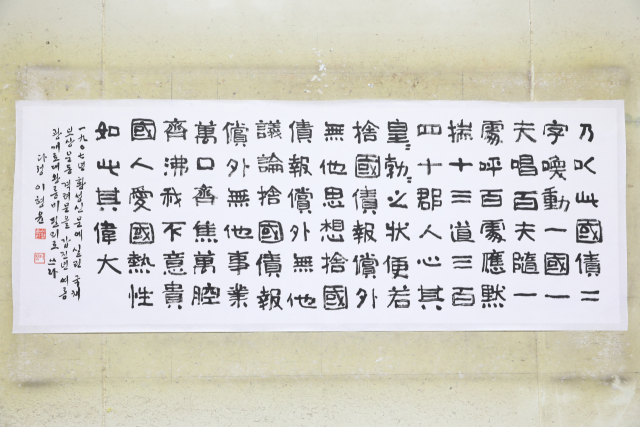 乃以此國債二
字喚動一國一
夫唱百夫隨一
處呼百處應黙
揣十三道三百
四十郡人心其
皇〻勃〻之狀便若
捨國債報償外
無他思想捨國
債報償外無他
議論捨國債報
償外無他事業
萬口齊焦萬腔
齊沸我不意貴
國人愛國熱性
如此其偉大
一九○七년 황성신문에 실린 국채
보상운동 격려문을 갑진년 여름
광개토대왕릉비 필의로 쓰다
이현윤